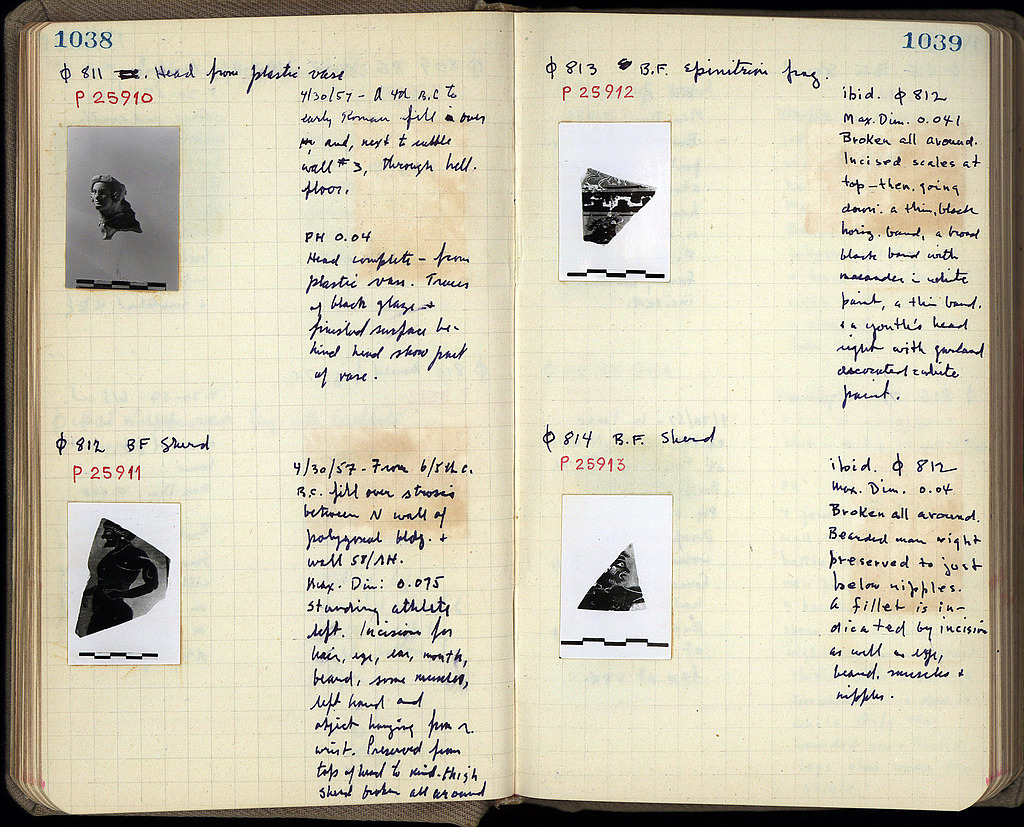 1038
Φ 811 . Head from plastic vase
P 25910
4/30/57 - A 4th B.C to
early Roman fill over
and, next to rubble
wall #3, through hell.
floor.
PH 0.04
Head complete - from
plastic vase. Traces
of black glaze +
finished surface be-
hind head show part
of vase.
Φ 812 BF Sherd
P 25911
4/30/57 - From 6/5th c.
B.C. fill over strosis
between N wall of
polygonal bldg. +
wall 58/ΛΗ.
Max. Dim: 0.075
Standing athlete
left. Incisions for
hair, eye, ear, mouth,
beard, some muscles,
left hand and
object hanging from r.
wrist. Preserved from
top of head to mid-thigh
Sherd broken all around
1039
Φ 813 B.F. Epinetron frag
P 25912
ibid. Φ 812
Max. Dim. 0.041
Broken all around.
Incised scales at
top - then, going
down: a thin, black
horiz. band, a broad
black band with
meander in white
paint, a thin band.
+ a youth's head
right with garland
decorated white
paint.
Φ 814 B.F. Sherd
P 25913
ibid. Φ 812
Max. Dim. 0.04
Broken all around.
Bearded man right
preserved to just
below nipples.
A fillet is in-
dicated by incision
as well as eye,
beard, muscles +
nipples.